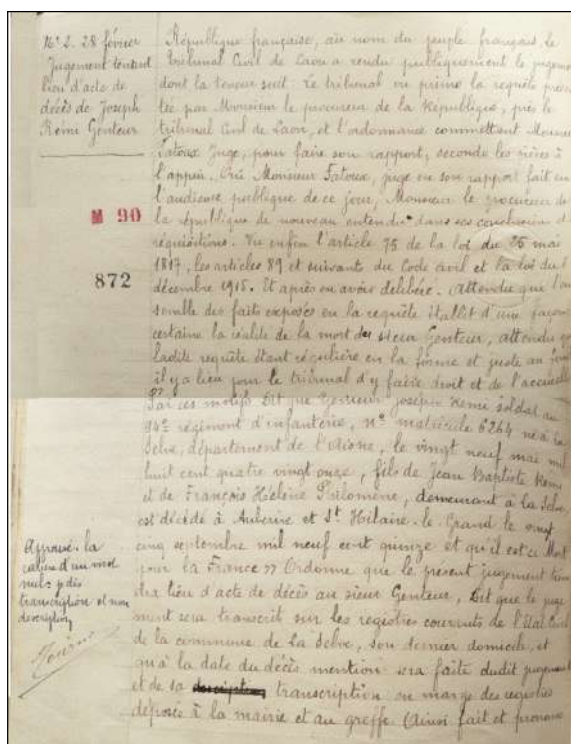 N° 2. 28 février
Jugement tenant
lieu d'acte de
décès de Joseph
Rémi Genteur
M 90
872
République française, au nom du peuple français, le
Tribunal Civil de Laon a rendu publiquement le jugeme
dont la teneur suit. Le tribunal vu primo la requête prése
tée par Monsieur le procureur de la République, près le
tribunal Civil de Laon, et l'ordonnance commettant Monsieur
Fatoux juge, pour faire son rapport, secondo les pièces à
l'appui. Ouï Monsieur Fatoux, juge en son rapport fait en
l'audience publique de ce jour, Monsieur le procureur de
la république de nouveau entendu dans ses conclusions et
réquisitions. Vu enfin l'article 75 de la loi du 25 mai
1817, les articles 89 et suivants du Code civil et la loi du
décembre 1915. Et après en avoir délibéré. Attendu que l'en
semble des faits exposés en la requête établit d'une façon
certaine la réalité de la mort du sieur Genteur, attendu que
ladite requête étant régulière en la forme et juste au fond
il y a lieu pour le tribunal d'y faire droit et de l'accueille
Par ces motifs Dit que Genteur Joseph Rémi soldat au
94e régiment d'infanterie, n° matricule 6264 né à la
Selve, département de l'Aisne, le vingt neuf mai mil
huit cent quatre vingt onze, fils de Jean Baptiste Rémi
et de François Hélène Philomène, demeurant à la Selve,
est décédé à Auberive et St Hilaire-le-Grand le vingt
cinq septembre mil neuf cent quinze et qu'il est « Mort
pour la France » Ordonne que le présent jugement tien
dra lieu d'acte de décès au sieur Genteur, Dit que le juge
ment sera transcrit sur les registres courants de l'Etat Civil
de la commune de la Selve, son dernier domicile, et
qu'à la date du décès mention sera faite dudit jugement
et de sa description transcription en marge des registres
déposés à la mairie et au greffe (Ainsi fait et prononcé
Approuvé la
rature d'un mot
nul; dis
transcription et non
description